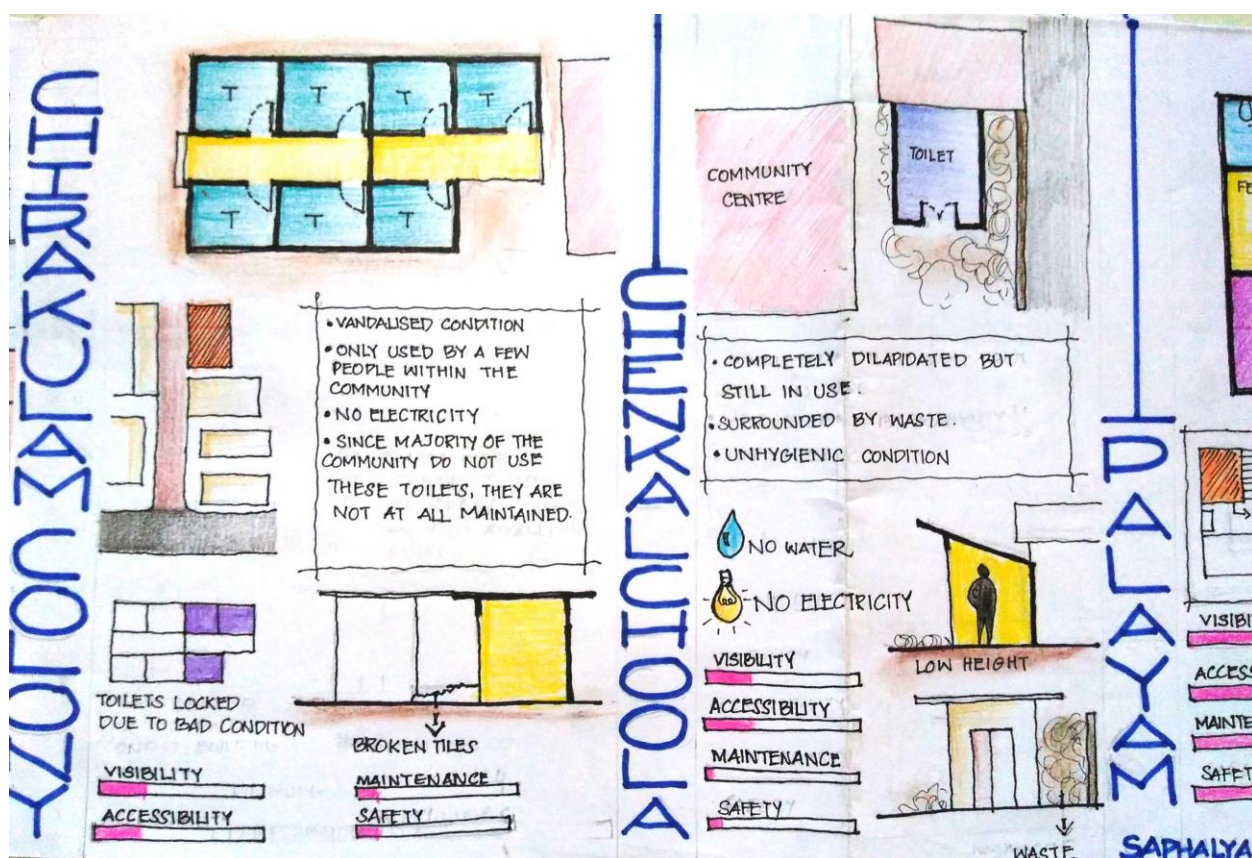 CHIRAKULAM COLONY
T T T T
T T T
• VANDALISED CONDITION
• ONLY USED BY A FEW
PEOPLE WITHIN THE
COMMUNITY
• NO ELECTRICITY
• SINCE MAJORITY OF THE
COMMUNITY DO NOT USE
THESE TOILETS, THEY ARE
NOT AT ALL MAINTAINED.
TOILETS LOCKED
DUE TO BAD CONDITION
BROKEN TILES
VISIBILITY
ACCESSIBILITY
MAINTENANCE
SAFETY
CHENKALCHOOLA
COMMUNITY
CENTRE
TOILET
• COMPLETELY DILAPIDATED BUT
STILL IN USE.
• SURROUNDED BY WASTE.
• UNHYGIENIC CONDITION
NO WATER
NO ELECTRICITY
VISIBILITY
ACCESSIBILITY
MAINTENANCE
SAFETY
LOW HEIGHT
WASTE
PALAYAM
FE
VISIBI
ACCESS
MAINTE
SAFET
SAPHALYA